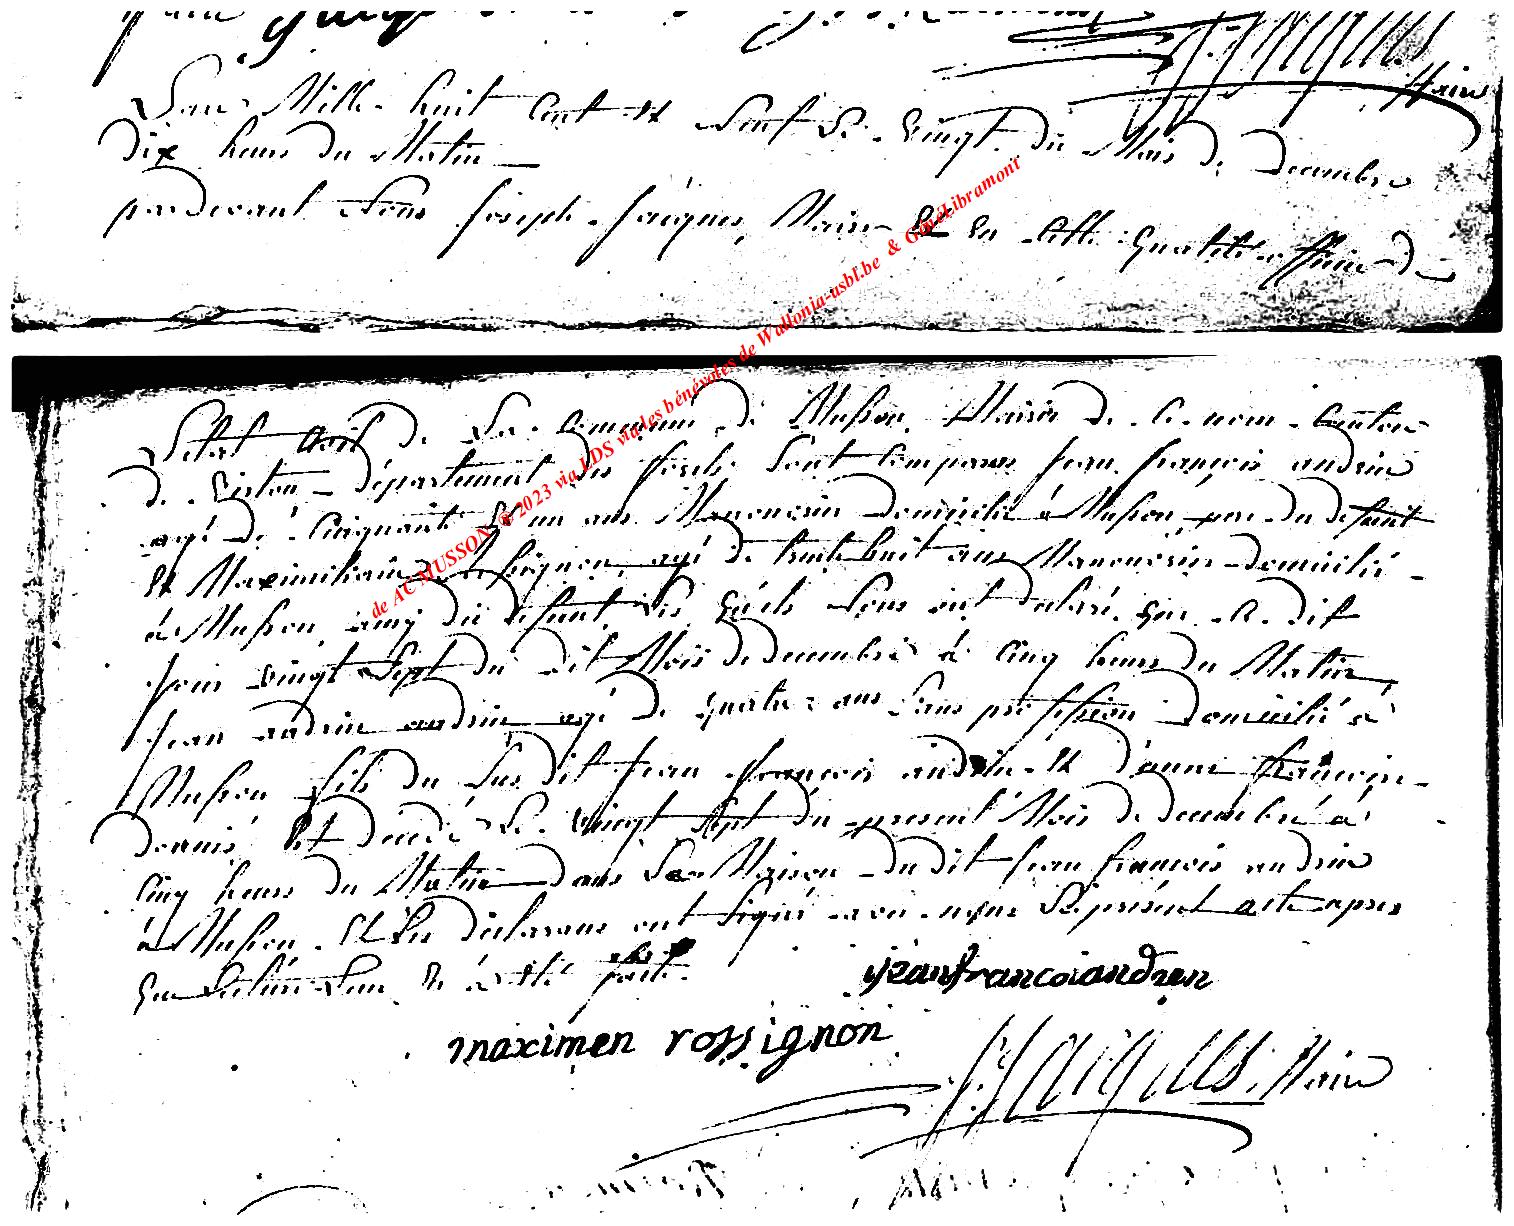 Maire
L'an Mille huit Cent et Neuf Le vingt du Mois de decembre
dix heures du Matin
pardevant Nous joseph jacques, Maire Et En Cette Qualité officier de
Letat Civil de La Commune de Musson, Mairie de Ce nom Canton
de Virton département des forets Sont Comparus jean françois andrin
agé de Cinquante Et un ans Manouvrier domicilié à Musson pere du defunt
Et Maximiliain Rossignon, agé de trente huit ans Manouvrier domicilié
à Musson, amy du defunt, Les Quels Nous ont declaré que Ce dit
jour vingt Sept du dit Mois de decembre à Cinq heures du Matin
jean andrin andrin agé de quatre ans Sans profession domicilié à
Musson fils du Sus dit jean françois andrin Et d'anne françoise
Est decedé Le vingt Sept du present Mois de decembre à
Cinq heures du Matin dans La Maison du dit jean françois andrin
à Musson. Et Les declarans ont Signé avec nous Le présent acte apres
que Lecture Leur En a été faite.
jeanfrancoiandren
maximen rossignon
J: Jacques Maire
de AC MUSSON @ 2023 via LDS via les bénévoles de Wallonia-asbl.be & GénéLibramont